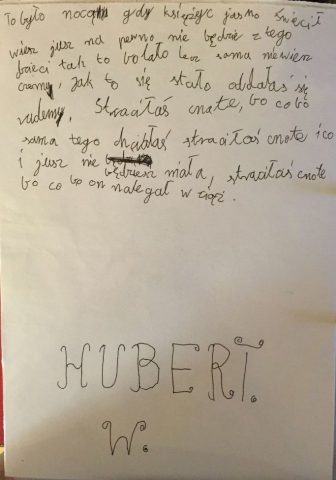 To było nocą gdy księżyc jasno święcił
wiesz jusz na pewno nie będzie z tego
dzieci tak to bolało lez sama niewiesz
czemu, jak to się stało oddałaś się
rudemu. Straciłaś cnote, bo co bo
sama tego chciałaś straciłaś cnote i co
i jusz nie będziesz miała, straciłaś cnote
bo co bo on nalegał w ciąż.
HUBERT.
W.